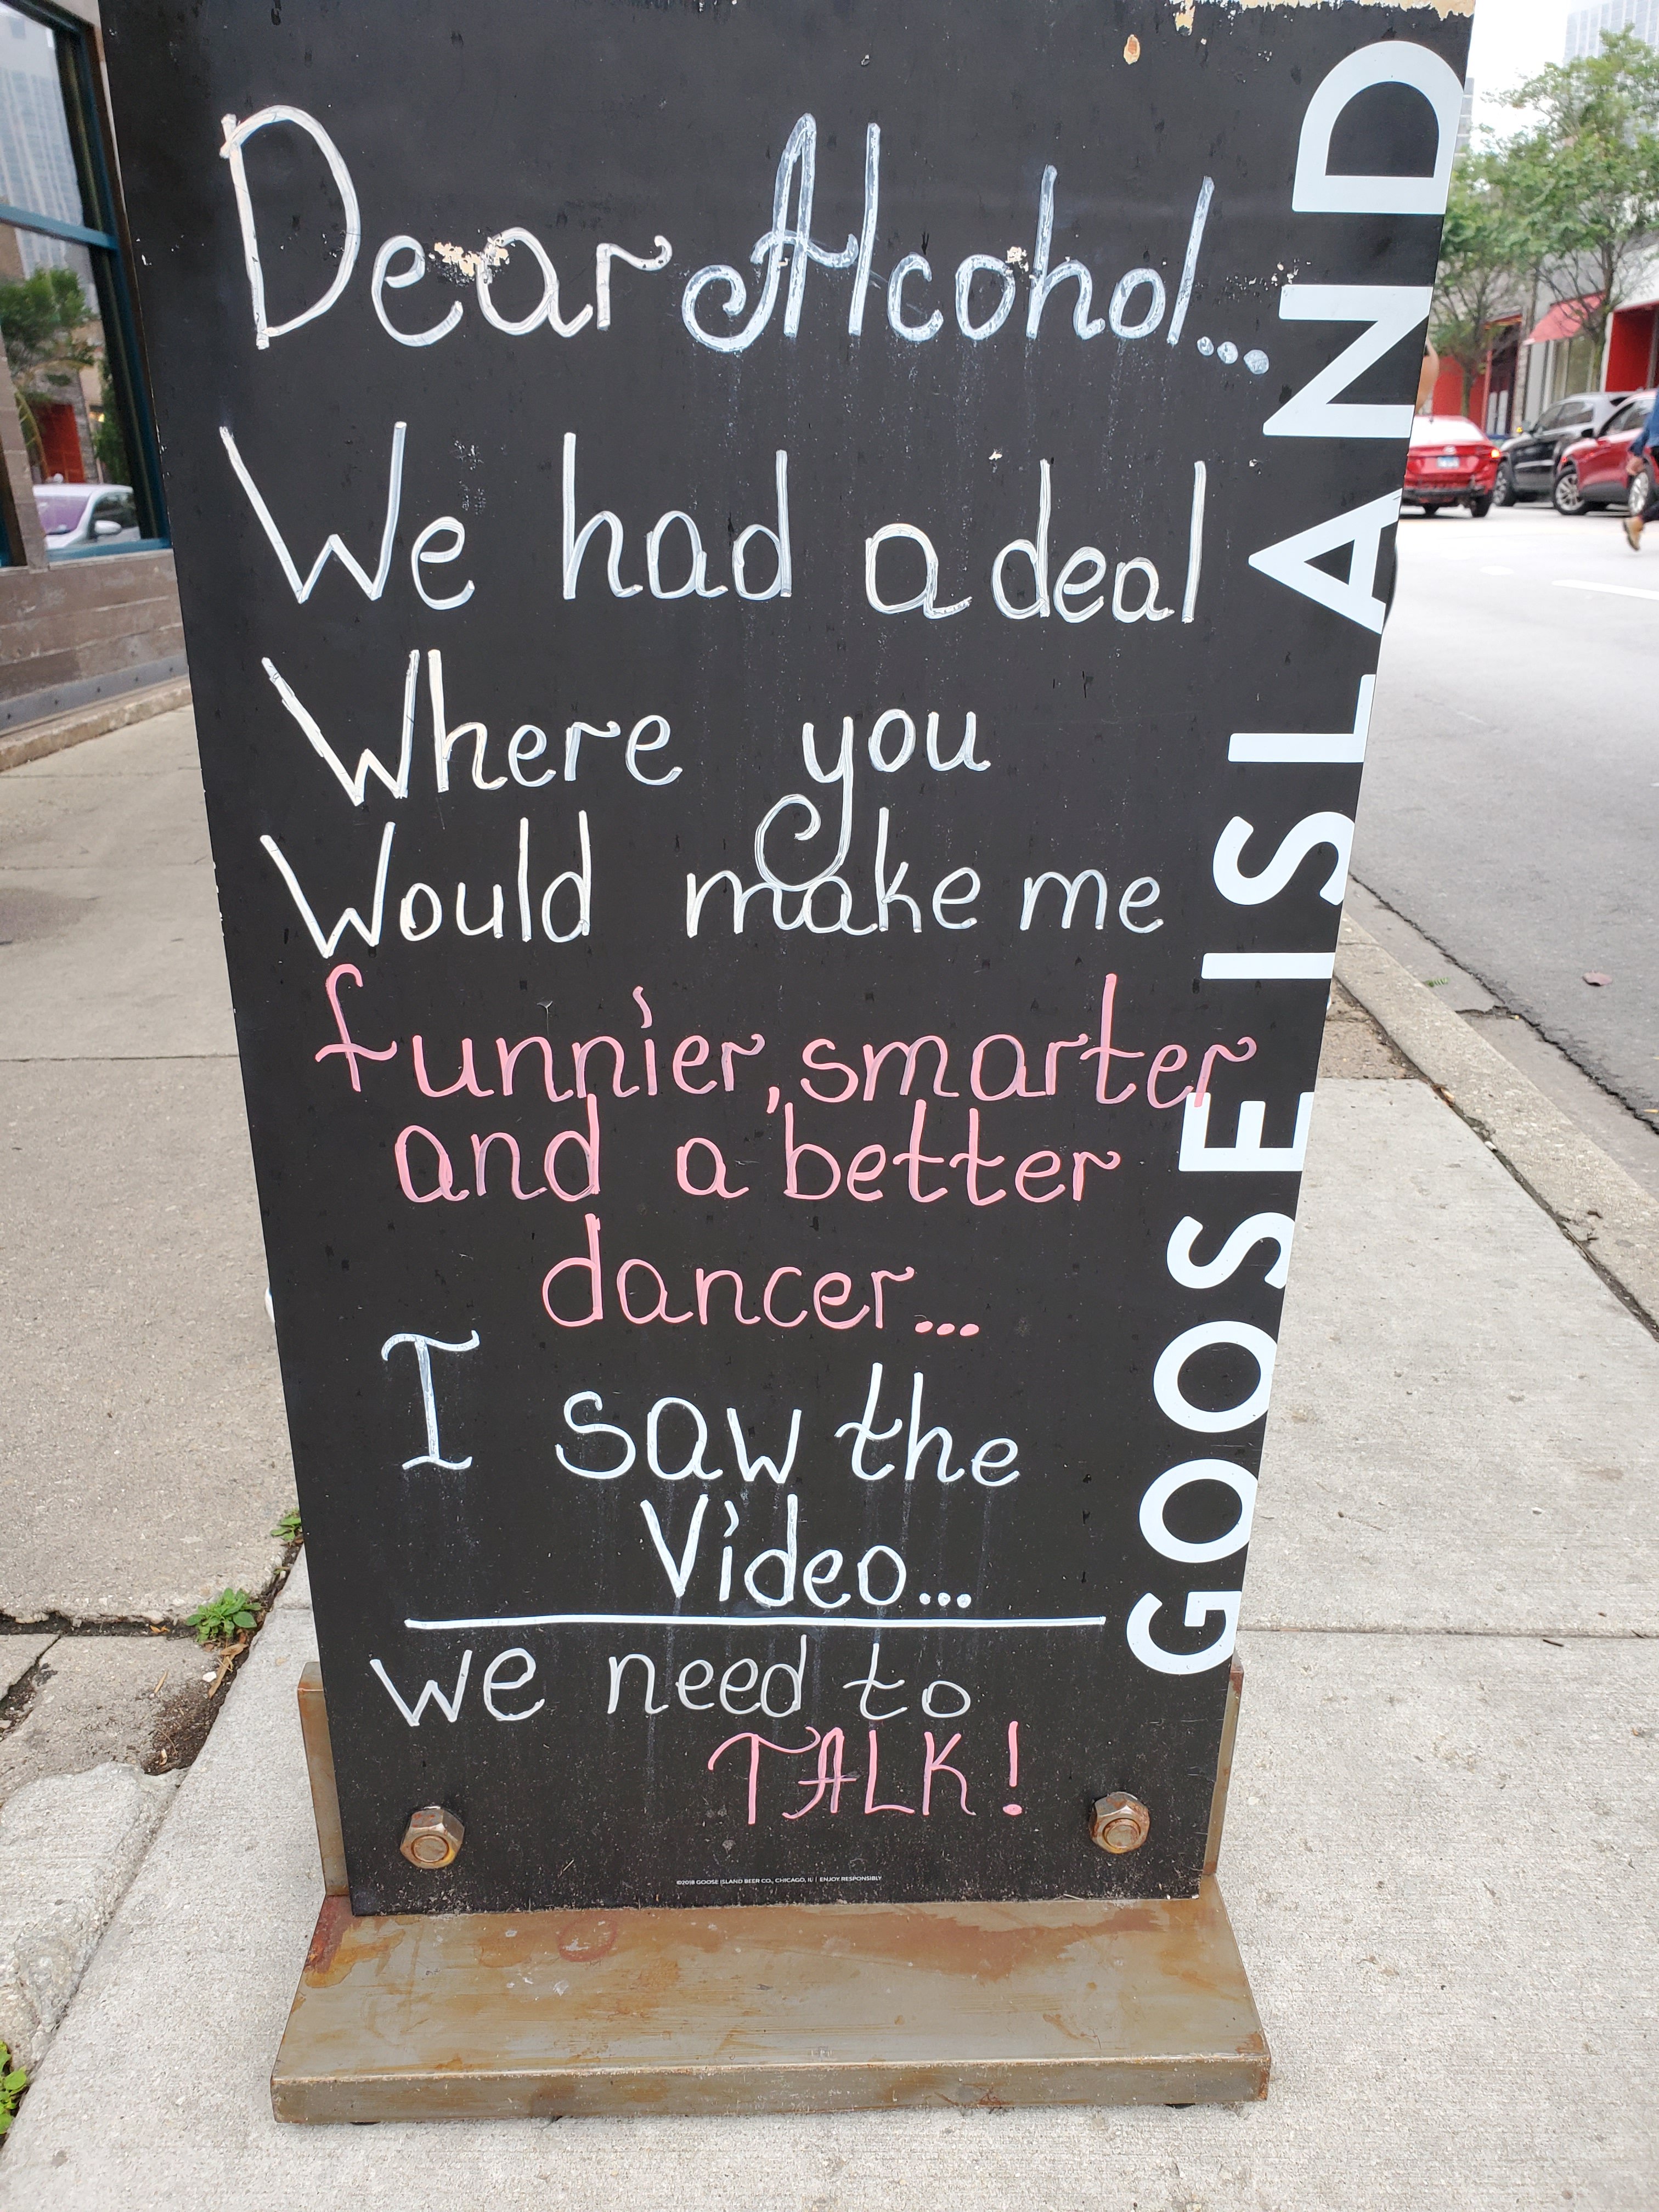 Dear Alcohol...
We had a deal
Where you
Would make me
funnier, smarter
and a better
dancer...
I saw the
Video...
we need to
TALK!
GOOSE ISLAND
©2018 GOOSE ISLAND BEER CO., CHICAGO, IL | ENJOY RESPONSIBLY